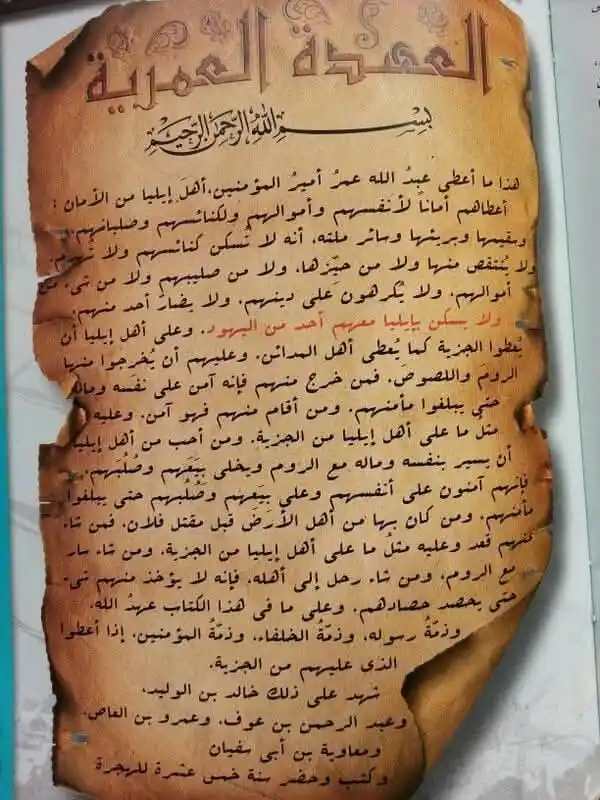 العهدة العمرية
بسم الله الرحمن الرحيم
هذا ما أعطى عبدُ الله عمرُ أميرُ المؤمنين، أهلَ إيليا من الأمان :
أعطاهم أماناً لأنفسهم وأموالهم ولكنائسهم وصلبانهم،
وسقيمها وبريئها وسائر ملته، أنه لا تُسكن كنائسهم ولا تُهدم،
ولا يُنتقص منها ولا من حيِّزها، ولا من صليبهم ولا من شئ من
أموالهم، ولا يُكرهون على دينهم، ولا يضارّ أحد منهم،
ولا يسكن بإيليا معهم أحد من اليهود، وعلى أهل إيليا أن
يُعطوا الجزية كما يُعطى أهل المدائن، وعليهم أن يُخرجوا منها
الروم واللصوصَ، فمن خرج منهم فإنه آمن على نفسه وماله
حتى يبلغوا مأمنهم، ومن أقام منهم فهو آمن، وعليه
مثل ما على أهل إيليا من الجزية، ومن أحب من أهل إيليا
أن يسير بنفسه وماله مع الروم ويخلى بِيَعَهم وصُلُبهم،
فإنهم آمنون على أنفسهم وعلى بِيَعهم وصُلُبهم حتى يبلغوا
مأمنهم، ومن كان بها من أهل الأرض قبل مقتل فلان، فمن شاء
منهم قعد وعليه مثلُ ما على أهل إيليا من الجزية، ومن شاء سار
مع الروم، ومن شاء رحل إلى أهله، فإنه لا يؤخذ منهم شئ
حتى يحصد حصادهم، وعلى ما فى هذا الكتاب عهدُ الله،
وذمّةُ رسوله، وذمّةُ الخلفاء، وذمّةُ المؤمنين، إذا أعطوا
الذى عليهم من الجزية.
شهد على ذلك خالد بن الوليد،
وعبد الرحمن بن عوف، وعمرو بن العاص،
ومعاوية بن أبى سفيان
وكتب وحضر سنة خمس عشرة للهجرة